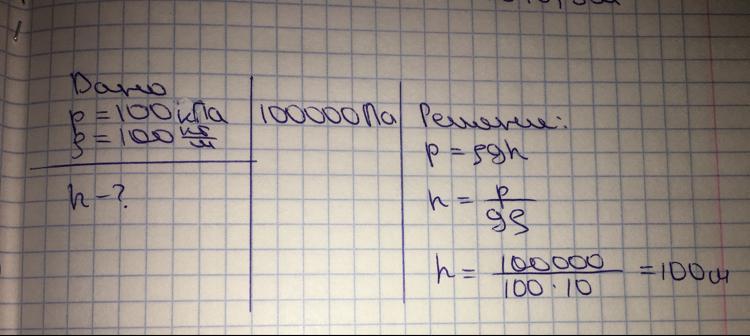 Дано
p = 100 кПа
ρ = 100 кг/м
h - ?
100000 Па
Решение:
p = ρgh
h = p/gρ
h = 100000/100·10 = 100 м